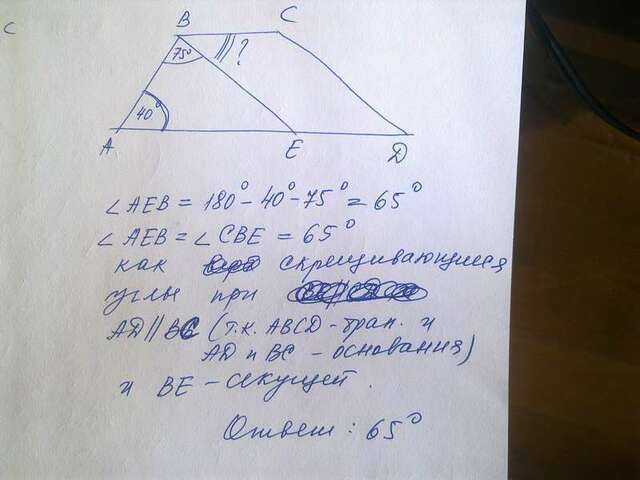 C
B C
75° ?
40°
A E D
∠AEB = 180° - 40° - 75° = 65°
∠AEB = ∠CBE = 65°
как скрещивающиеся
углы при
AD || BC (т.к. ABCD - трап. и
AD и BC - основания)
и BE - секущей.
Ответ: 65°